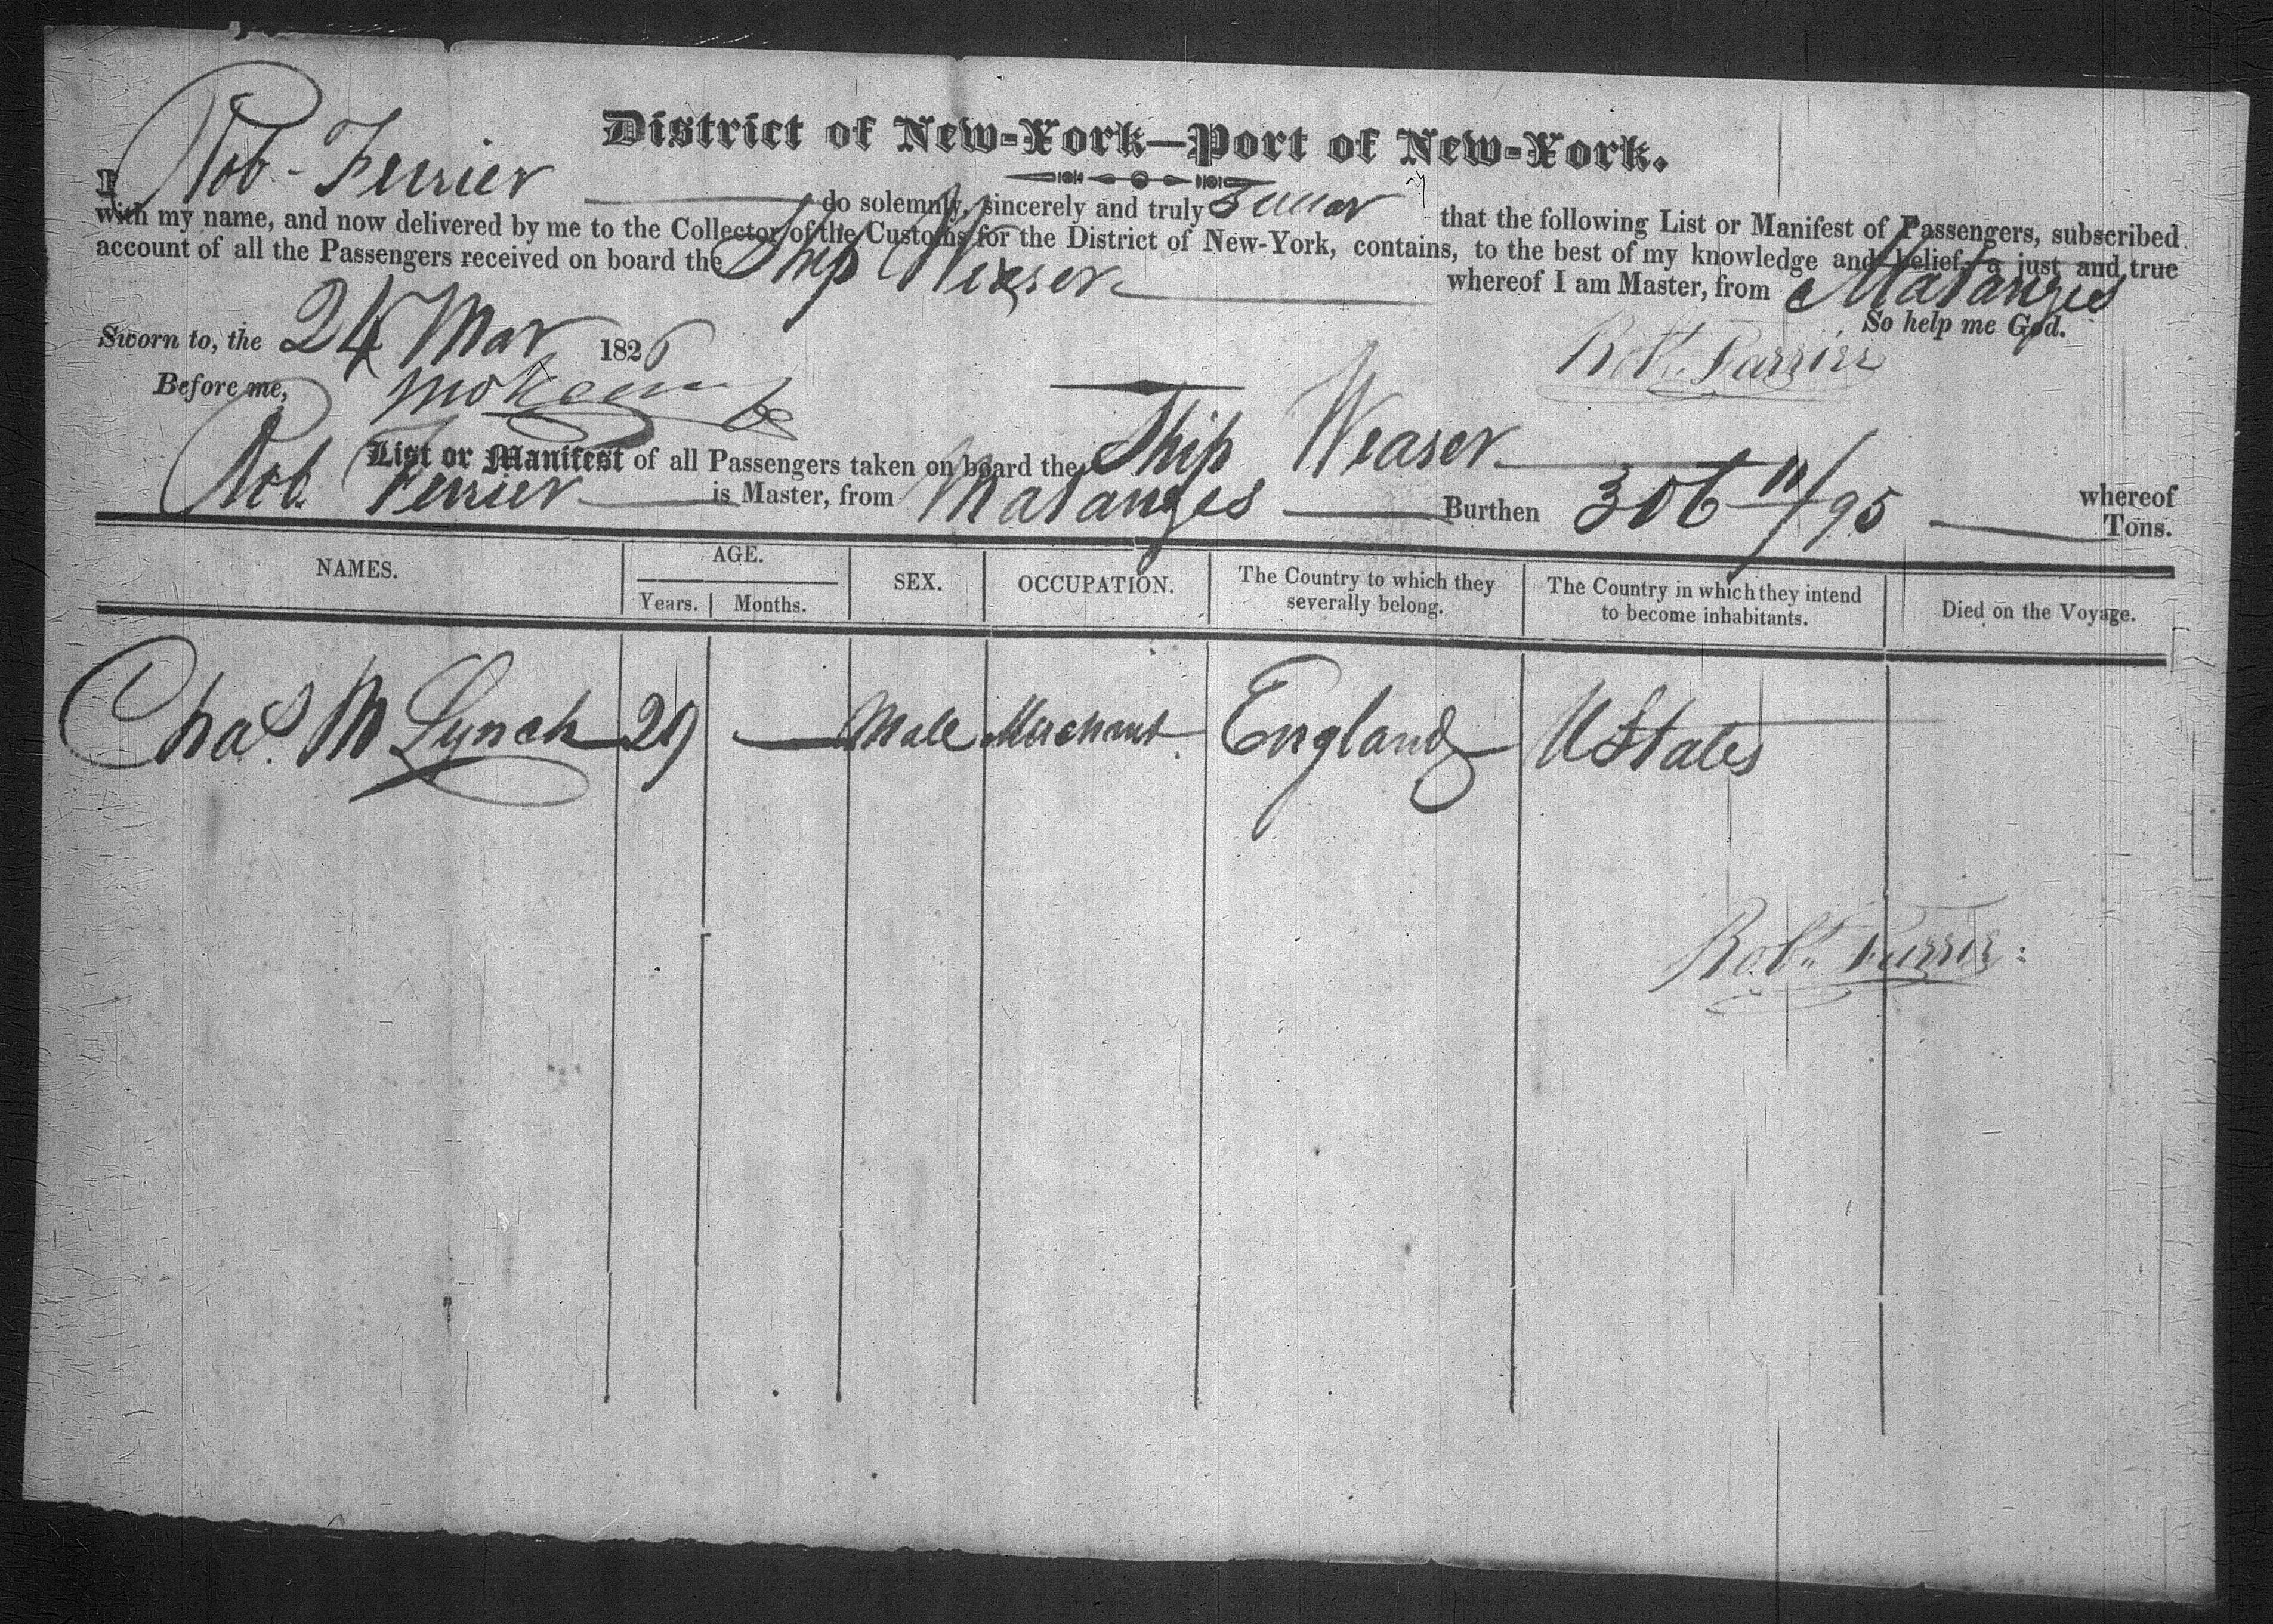 District of New-York—Port of New-York.
I Rob- Ferrier do solemnly, sincerely and truly Swear that the following List or Manifest of Passengers, subscribed
with my name, and now delivered by me to the Collector of the Customs for the District of New-York, contains, to the best of my knowledge and belief, a just and true
account of all the Passengers received on board the Ship Weaser whereof I am Master, from Matanzes
So help me God.
Sworn to, the 24 Mar 1826
Robt. Ferrier
Before me,
List or Manifest of all Passengers taken on board the Ship Weaser whereof
Rob. Ferrier is Master, from Matanzes Burthen 306 11/95 Tons.
NAMES. AGE. SEX. OCCUPATION. The Country to which they severally belong. The Country in which they intend to become inhabitants. Died on the Voyage.
Years. Months.
Chas. M Lynch 29 — Male Merchant England UStates
Robt. Ferrier